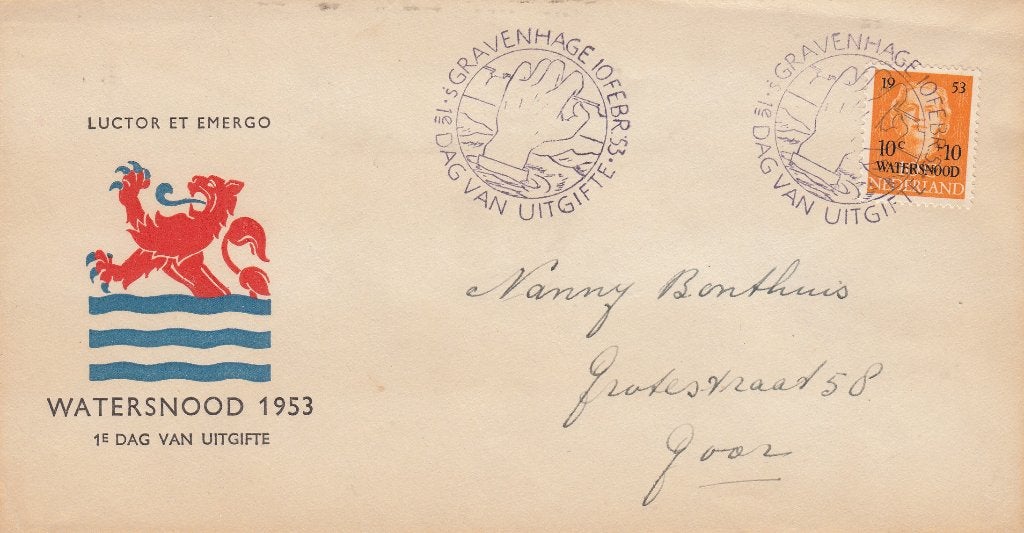 LUCTOR ET EMERGO
WATERSNOOD 1953
1E DAG VAN UITGIFTE
'S GRAVENHAGE 10 FEBR. 53.
1e DAG VAN UITGIFTE.
'S GRAVENHAGE 10 FEBR. 53
1e DAG VAN UITGIFTE
19 53
10c +10
WATERSNOOD
NEDERLAND
Nanny Bonthuis
Grotestraat 58
Goor